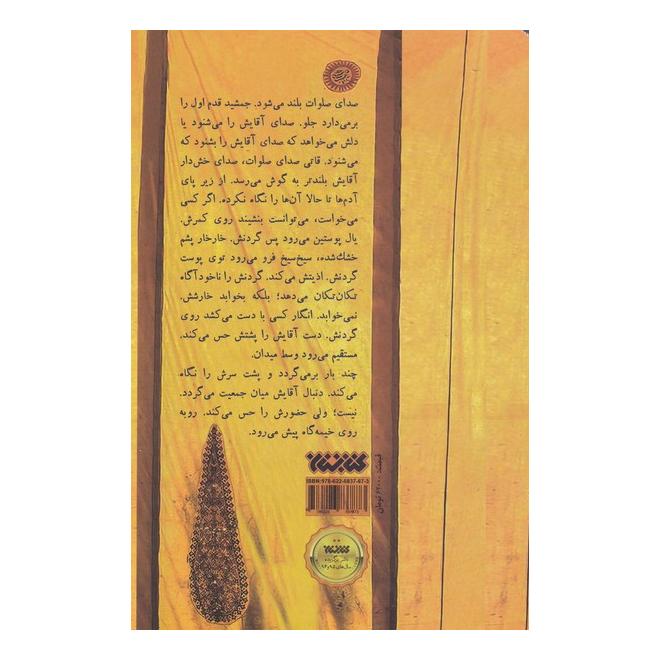 صدای صلوات بلند می‌شود. جمشید قدم اول را
برمی‌دارد جلو. صدای آقایش را می‌شنود یا
دلش می‌خواهد که صدای آقایش را بشنود که
می‌شنود. قاتی صدای صلوات، صدای خش‌دار
آقایش بلندتر به گوش می‌رسد. از زیر پای
آدم‌ها تا حالا آن‌ها را نگاه نکرده. اگر کسی
می‌خواست، می‌توانست بنشیند روی کمرش.
یال پوستین می‌رود پس گردنش. خارخار پشم
خشك‌شده، سیخ‌سیخ فرو می‌رود توی پوست
گردنش. اذیتش می‌کند. گردنش را ناخودآگاه
تکان‌تکان می‌دهد؛ بلکه بخوابد خارشش.
نمی‌خوابد. انگار کسی با دست می‌کشد روی
گردنش. دست آقایش را پشتش حس می‌کند.
مستقیم می‌رود وسط میدان.
چند بار برمی‌گردد و پشت سرش را نگاه
می‌کند. دنبال آقایش میان جمعیت می‌گردد.
نیست؛ ولی حضورش را حس می‌کند. روبه
روی خیمه‌گاه پیش می‌رود.
ISBN: 978-622-6837-67-3
تومان